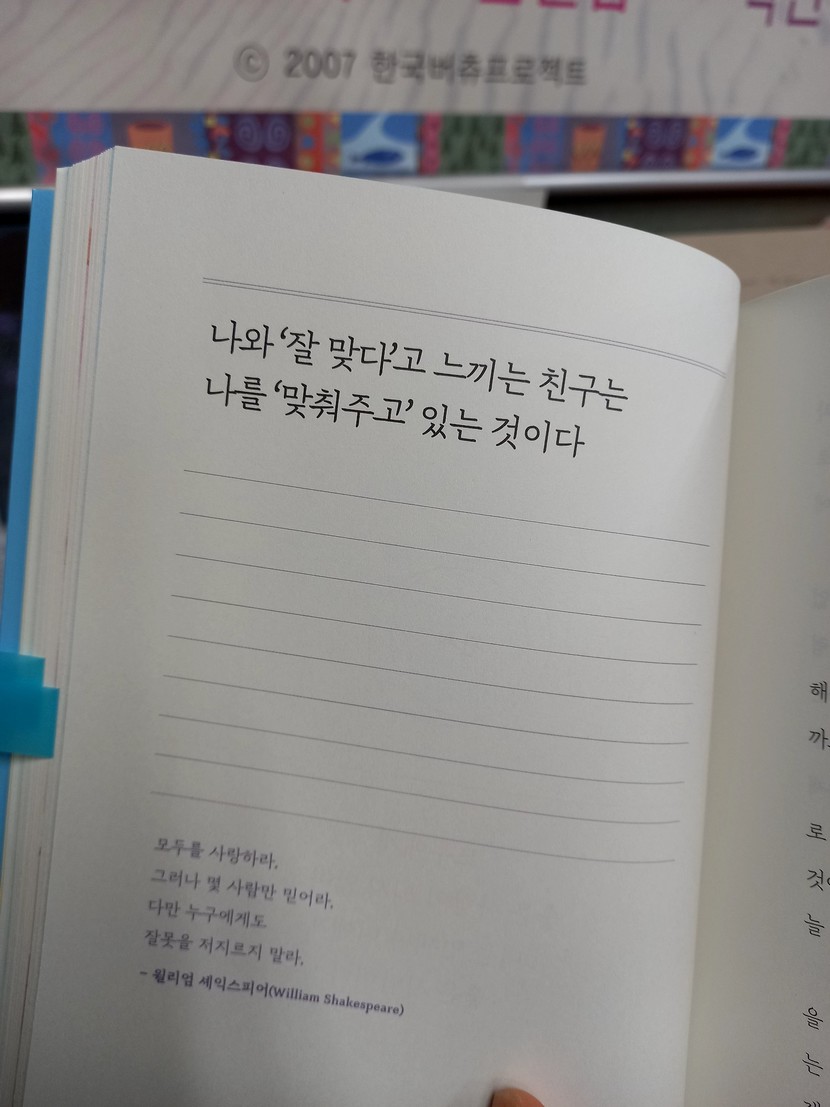 © 2007 한국버츄프로젝트
나와 ‘잘 맞다’고 느끼는 친구는
나를 ‘맞춰주고’ 있는 것이다
모두를 사랑하라.
그러나 몇 사람만 믿어라.
다만 누구에게도
잘못을 저지르지 말라.
- 윌리엄 셰익스피어(William Shakespeare)
해
로
늘
을
는